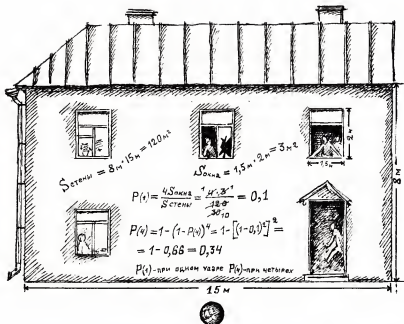 2 м
1,5 м
Sстены = 8м·15м = 120м²
Sокна = 1,5м · 2м = 3м²
P(1) = 4Sокна / Sстены = 4·3 / 120 = 0,1
1 1
30 10
P(4) = 1-(1-P(1))⁴ = 1-[(1-0,1)²]² =
= 1-0,66 = 0,34
P(1)-при одном ударе P(4)-при четырех
8 м
15 м